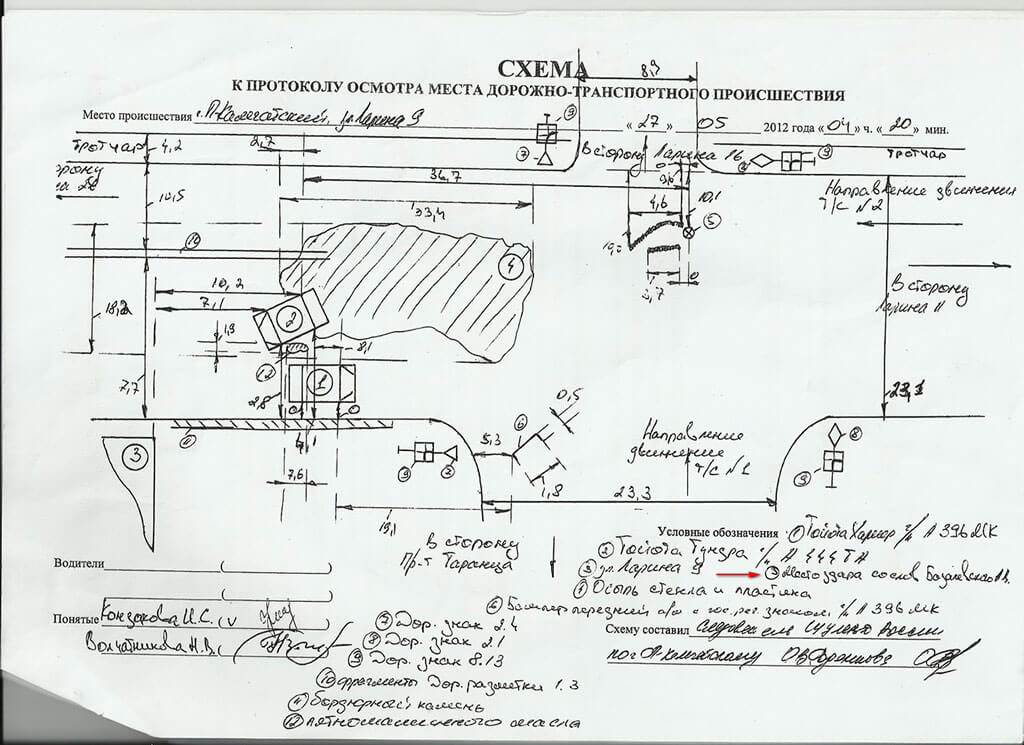 СХЕМА
К ПРОТОКОЛУ ОСМОТРА МЕСТА ДОРОЖНО-ТРАНСПОРТНОГО ПРОИСШЕСТВИЯ
Место происшествия г. П-Камчатский, ул. Ларина 9 « 27 » 05 2012 года « 04 » ч. « 20 » мин.
8,9
9
7
тротуар
4,2
2,7
В сторону Ларина 16
9
тротуар
36,7
33,4
10,5
4,6
10,1
5
Направление движения
Т/С N2
10
4
10,2
7,1
18,2
В сторону
Ларина 11
2
1,9
8,1
12
1
7,7
2,8
23,1
0,5
3
5,3
6
9
7
Направление
движения
Т/С N1
8
9
1,8
23,3
7,6
19,1
В сторону
Пр-т Таранца
Условные обозначения 1 Тойота Харьер г/н А 396 МК
2 Тойота Тундра г/н
3 ул. Ларина 9
3 Место удара со слов
Осыпь стекла и пластика
6 Бампер передний а/м с гос. рег. знаком г/н А 396 МК
Водители
Понятые
7 Дор. знак 2.4
8 Дор. знак 2.1
9 Дор. знак 8.13
10 фрагменты Дор. разметки 1.3
11 бордюрный камень
12 пятно машинного масла
Схему составил